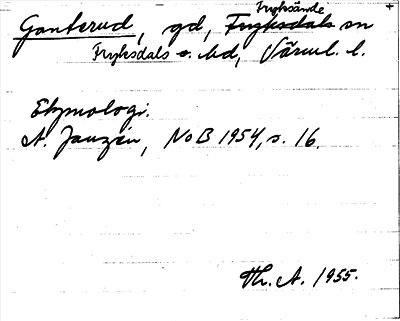 Fryksände
Ganterud, gd, Fryksdals sn
Fryksdals hd, Värml. l.
Etymologi.
A. Janzén, NoB 1954, s. 16.
Th. A. 1955.